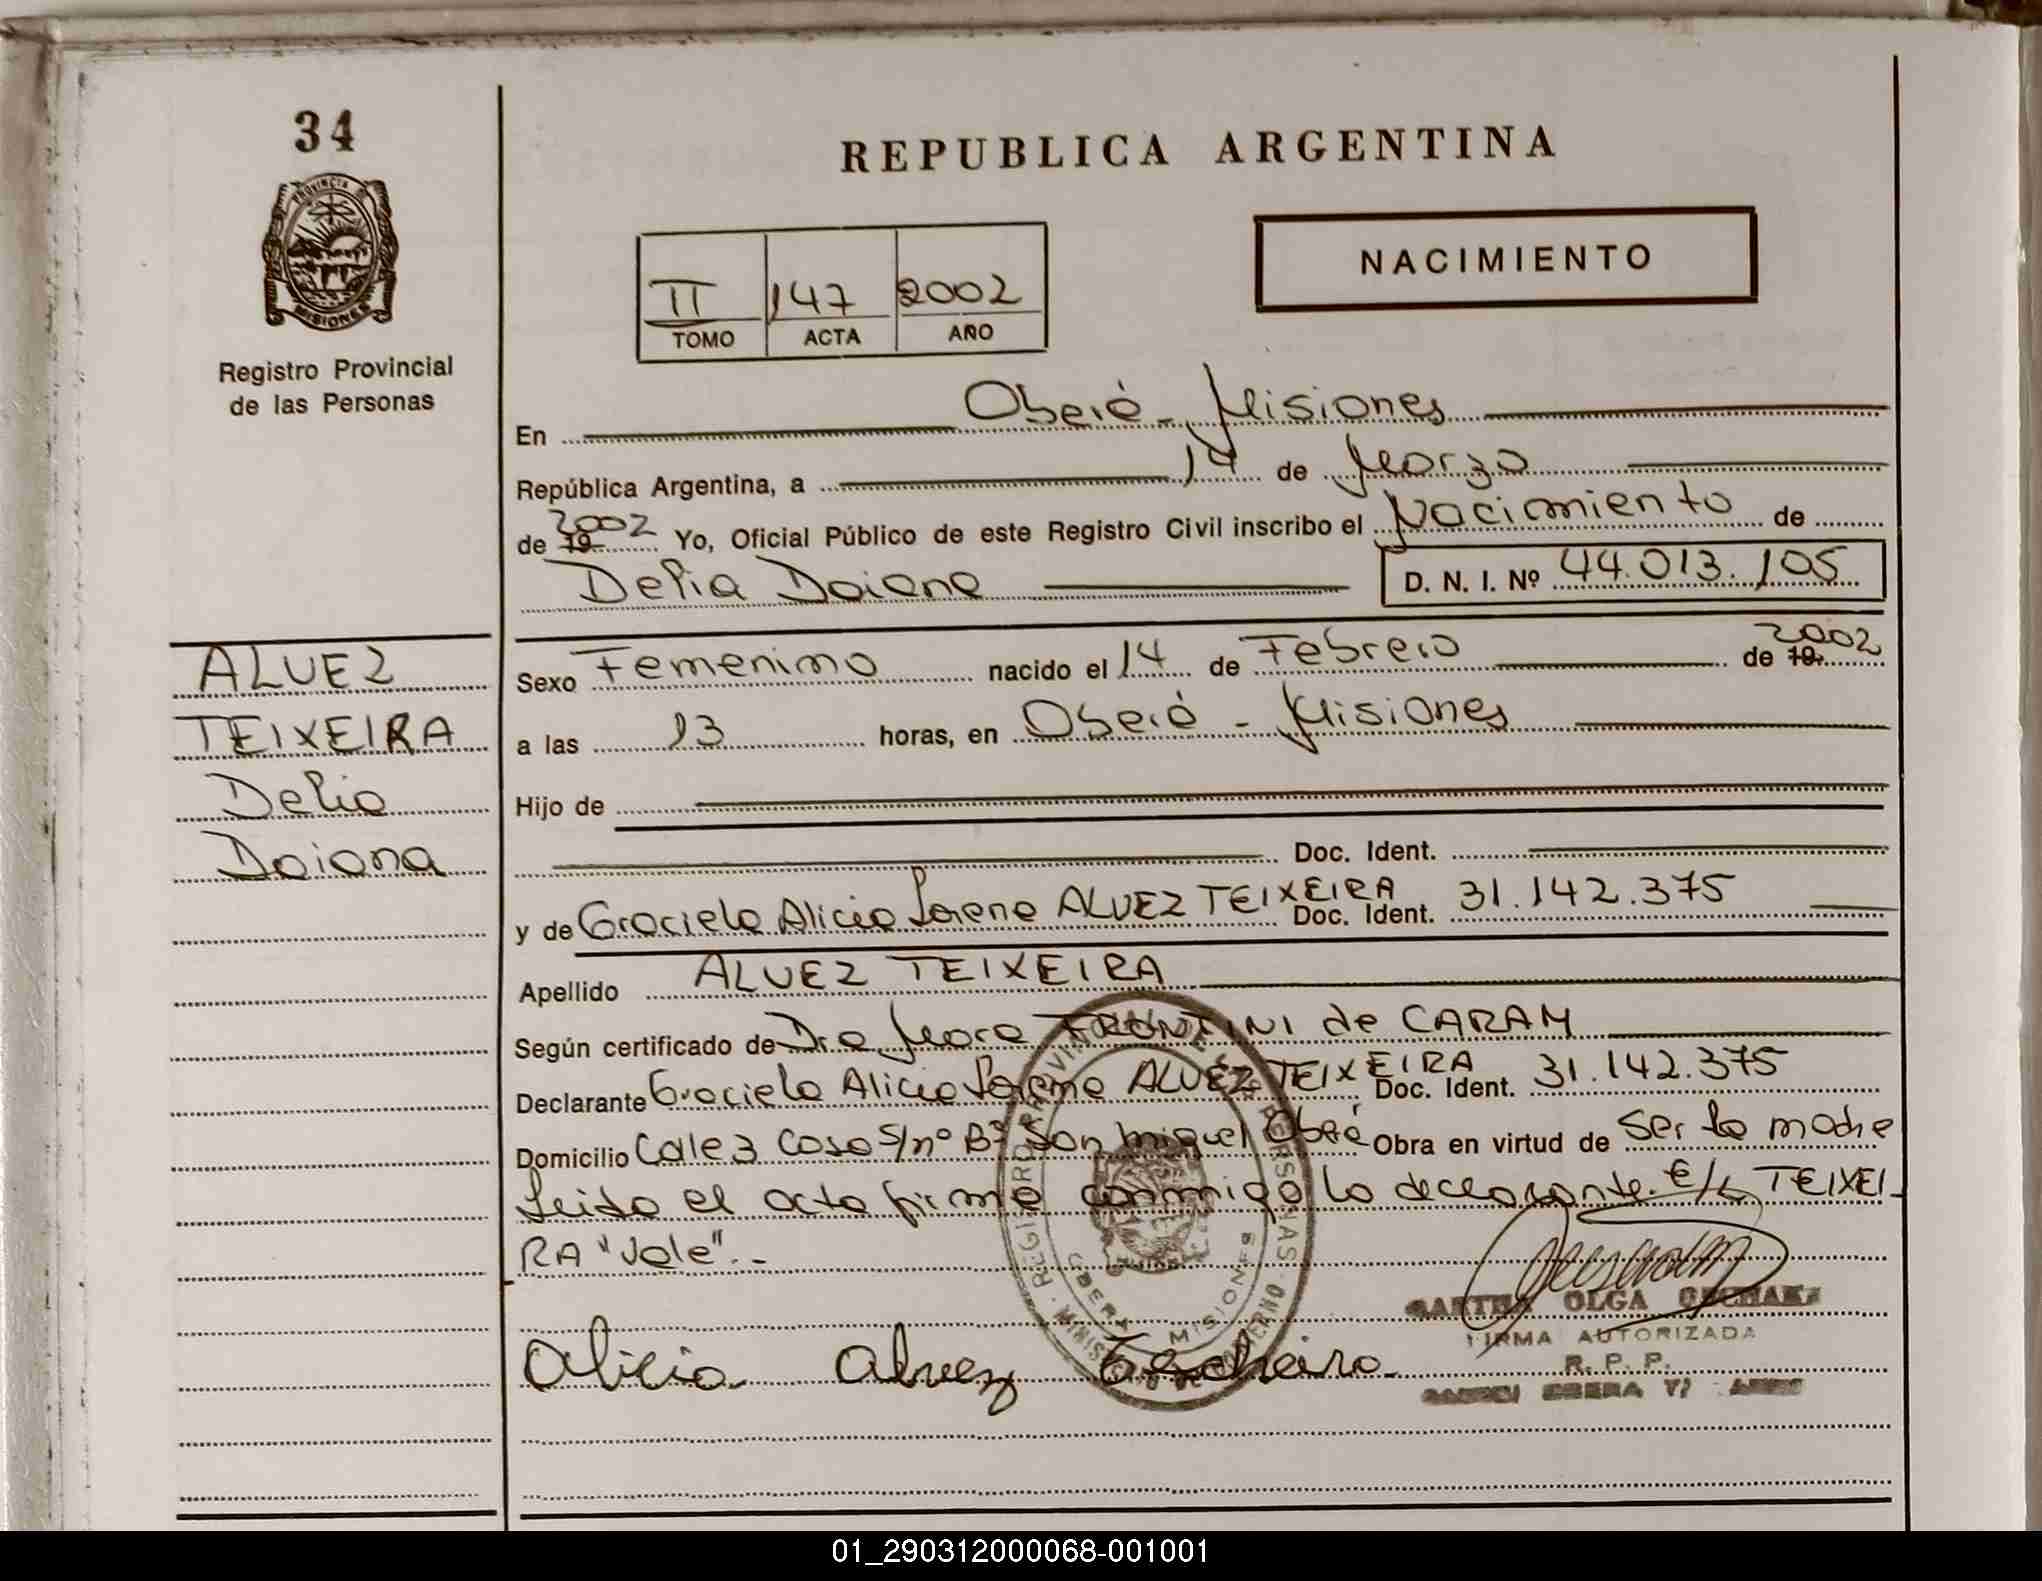 34
PROVINCIA DE
MISIONES
Registro Provincial
de las Personas
REPUBLICA ARGENTINA
NACIMIENTO
II 147 2002
TOMO ACTA AÑO
En Oberá - Misiones
República Argentina, a 14 de Marzo
de 19 2002 Yo, Oficial Público de este Registro Civil inscribo el Nacimiento de
Delia Daiana D. N. I. Nº 44.013.105
ALVEZ
TEIXEIRA
Delia
Daiana
Sexo Femenino nacido el 14 de Febrero de 19 2002
a las 13 horas, en Oberá - Misiones
Hijo de
Doc. Ident.
y de Graciela Alicia Lorena ALVEZ TEIXEIRA Doc. Ident. 31.142.375
Apellido ALVEZ TEIXEIRA
Según certificado de Dra Mara FRONTINI de CARAM
Declarante Graciela Alicia Lorena ALVEZ TEIXEIRA Doc. Ident. 31.142.375
Domicilio Calle 3 Casa S/nº Bº San Miguel Oberá Obra en virtud de ser la madre
Leida el acta firma conmigo la declarante. E/L TEIXEI-
RA "Vale".-
REGISTRO PROVINCIAL DE LAS PERSONAS
MINISTERIO DE GOBIERNO
OBERA MISIONES
OLGA
FIRMA AUTORIZADA
R. P. P.
OBERA
Alicia Alvez Techeira
01_290312000068-001001